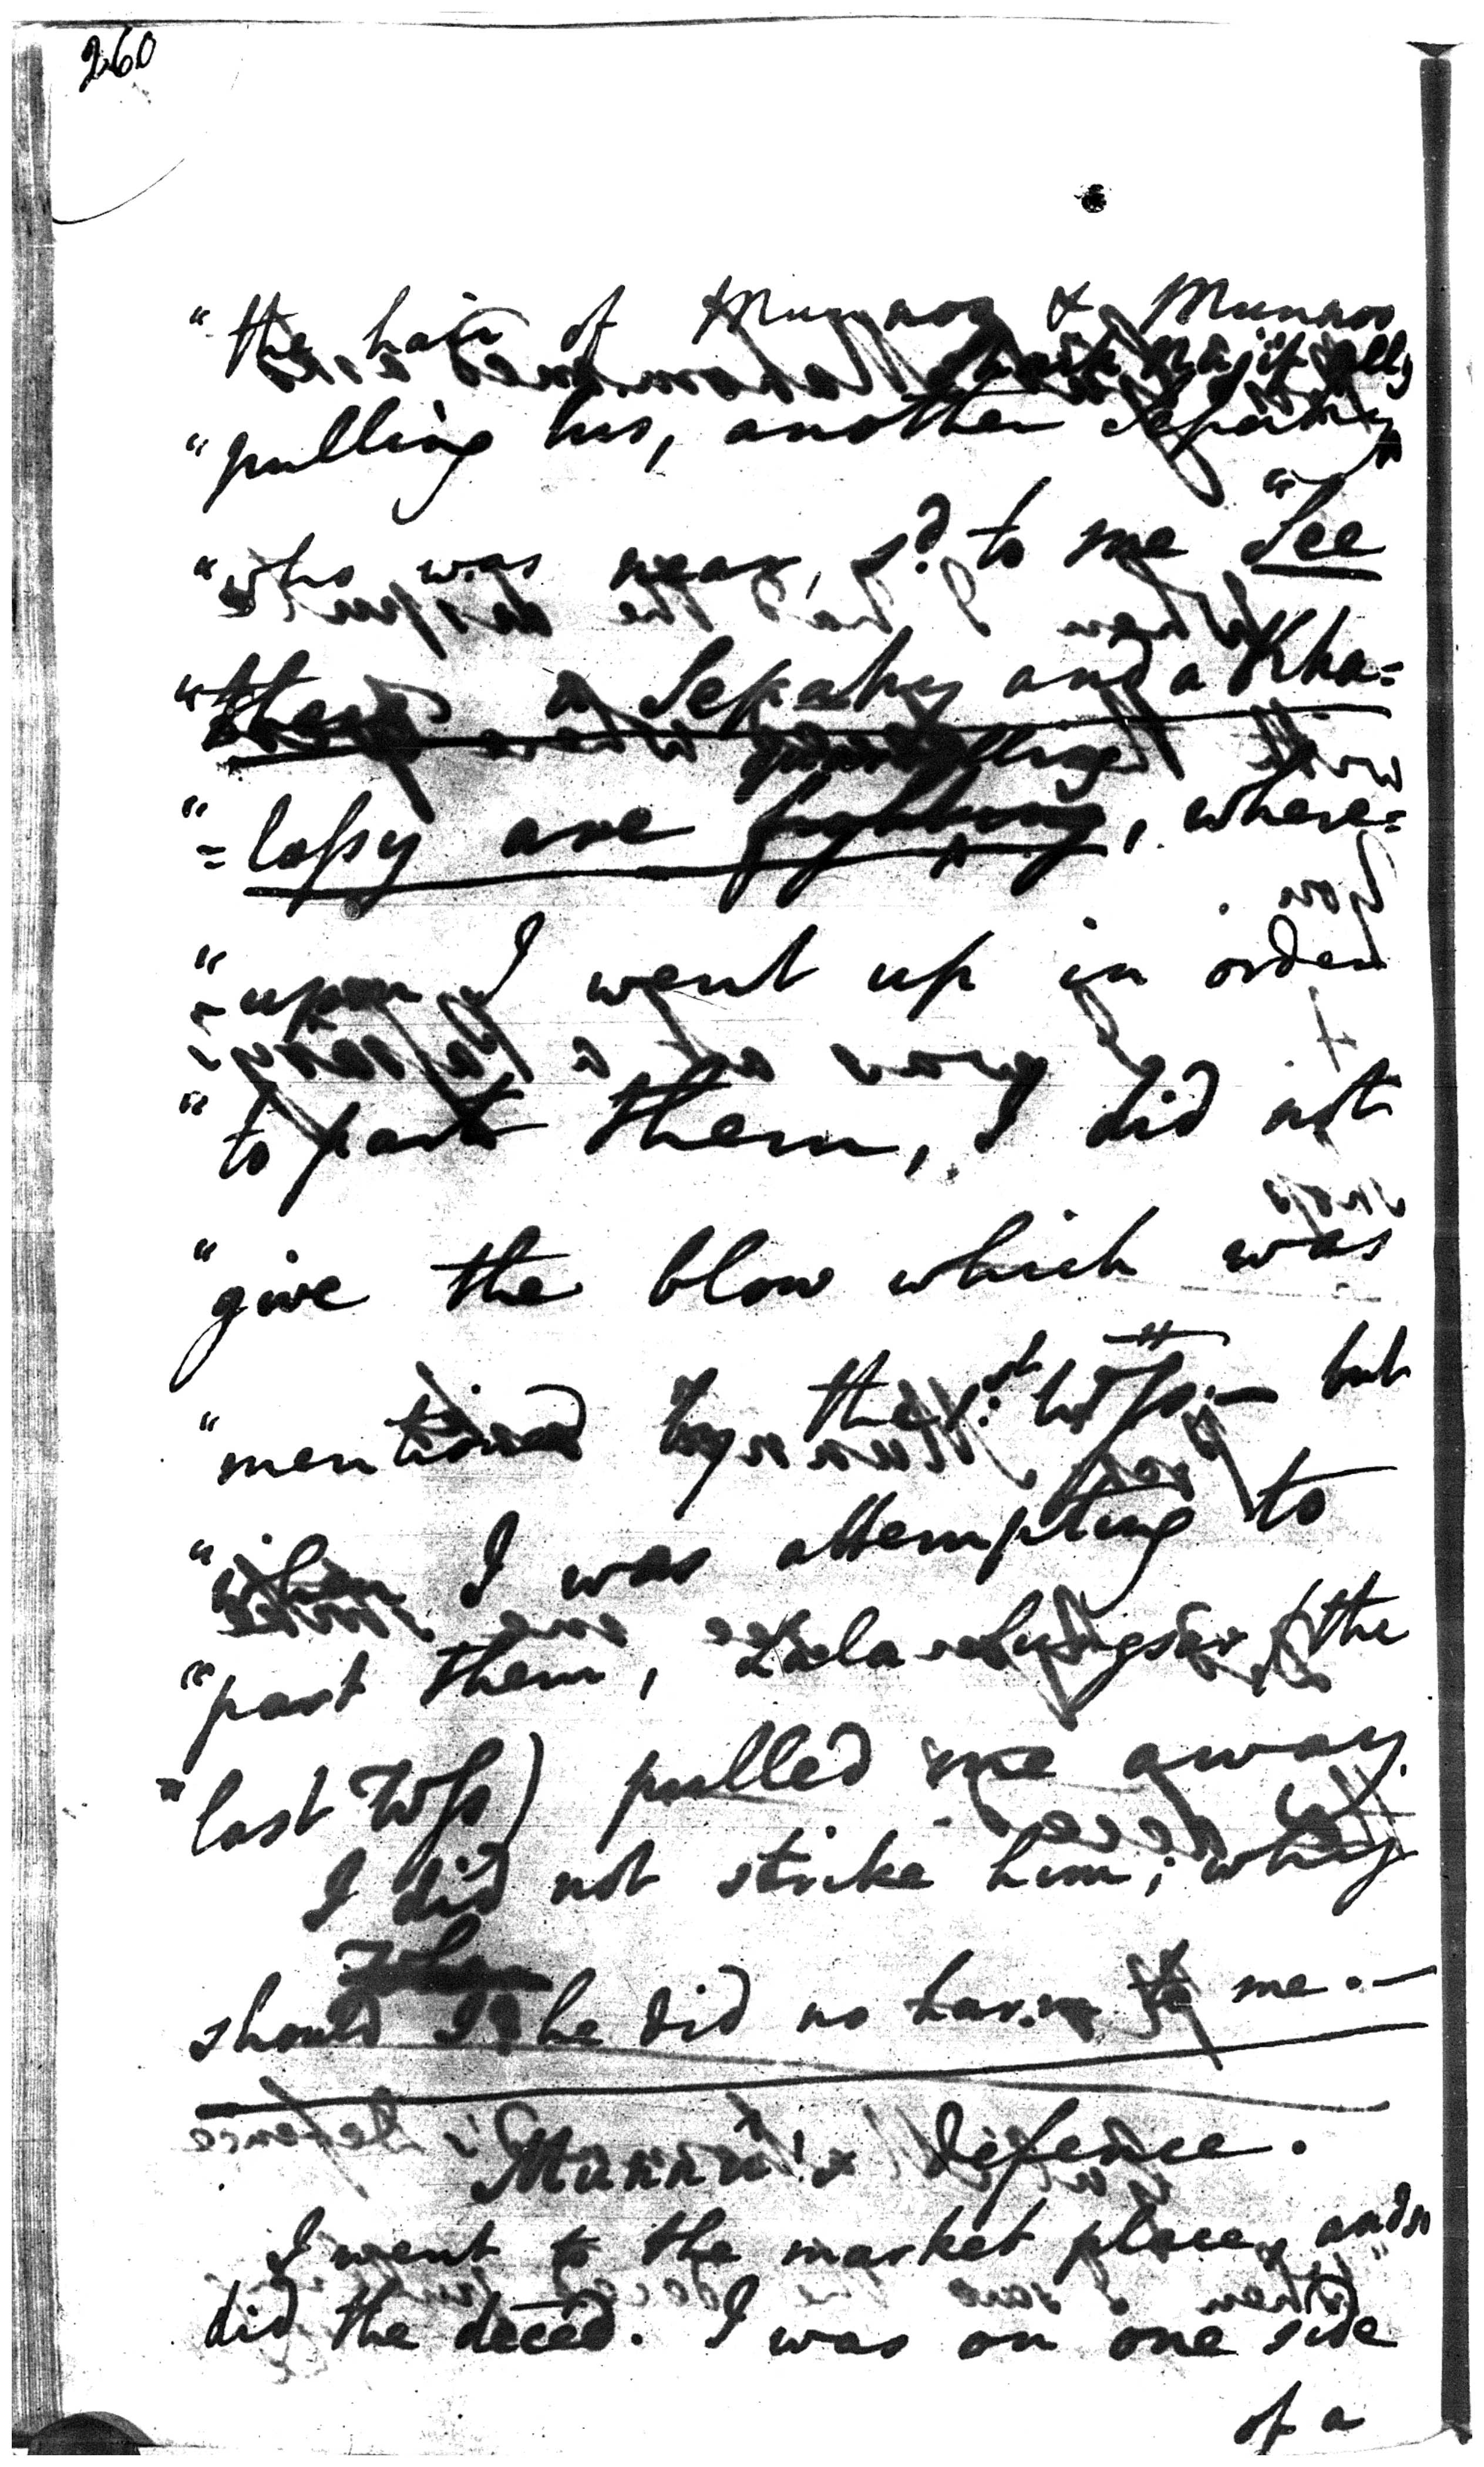 260
"the hair of Munnoo & Munnoo
"pulling his, another Sepahy
"who was near, s.d to me "See
"there a Sepahy and a Kha=
quarrelling
"=lassy are fighting, where=
"=upon I went up in order
"to part them, I did not
"give the blow which was
"mentioned by the 1.st Wss. — but
"when I was attempting to
"part them, the
"last Wss) pulled me away.
I did not strike him; why
should I he did no harm to me. —
Munnoo's Defence.
I went to the market place, and so
did the deced. I was on one side
of a